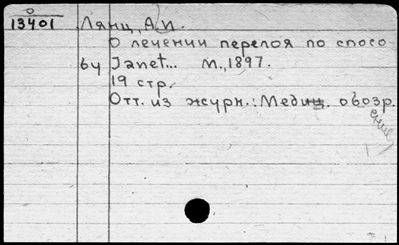 0
13401 Лянц, А.И.
О лечении перелоя по спосо
бу Janet... М., 1897.
19 стр.
Отт. из журн.: Медиц. обозр.
ение